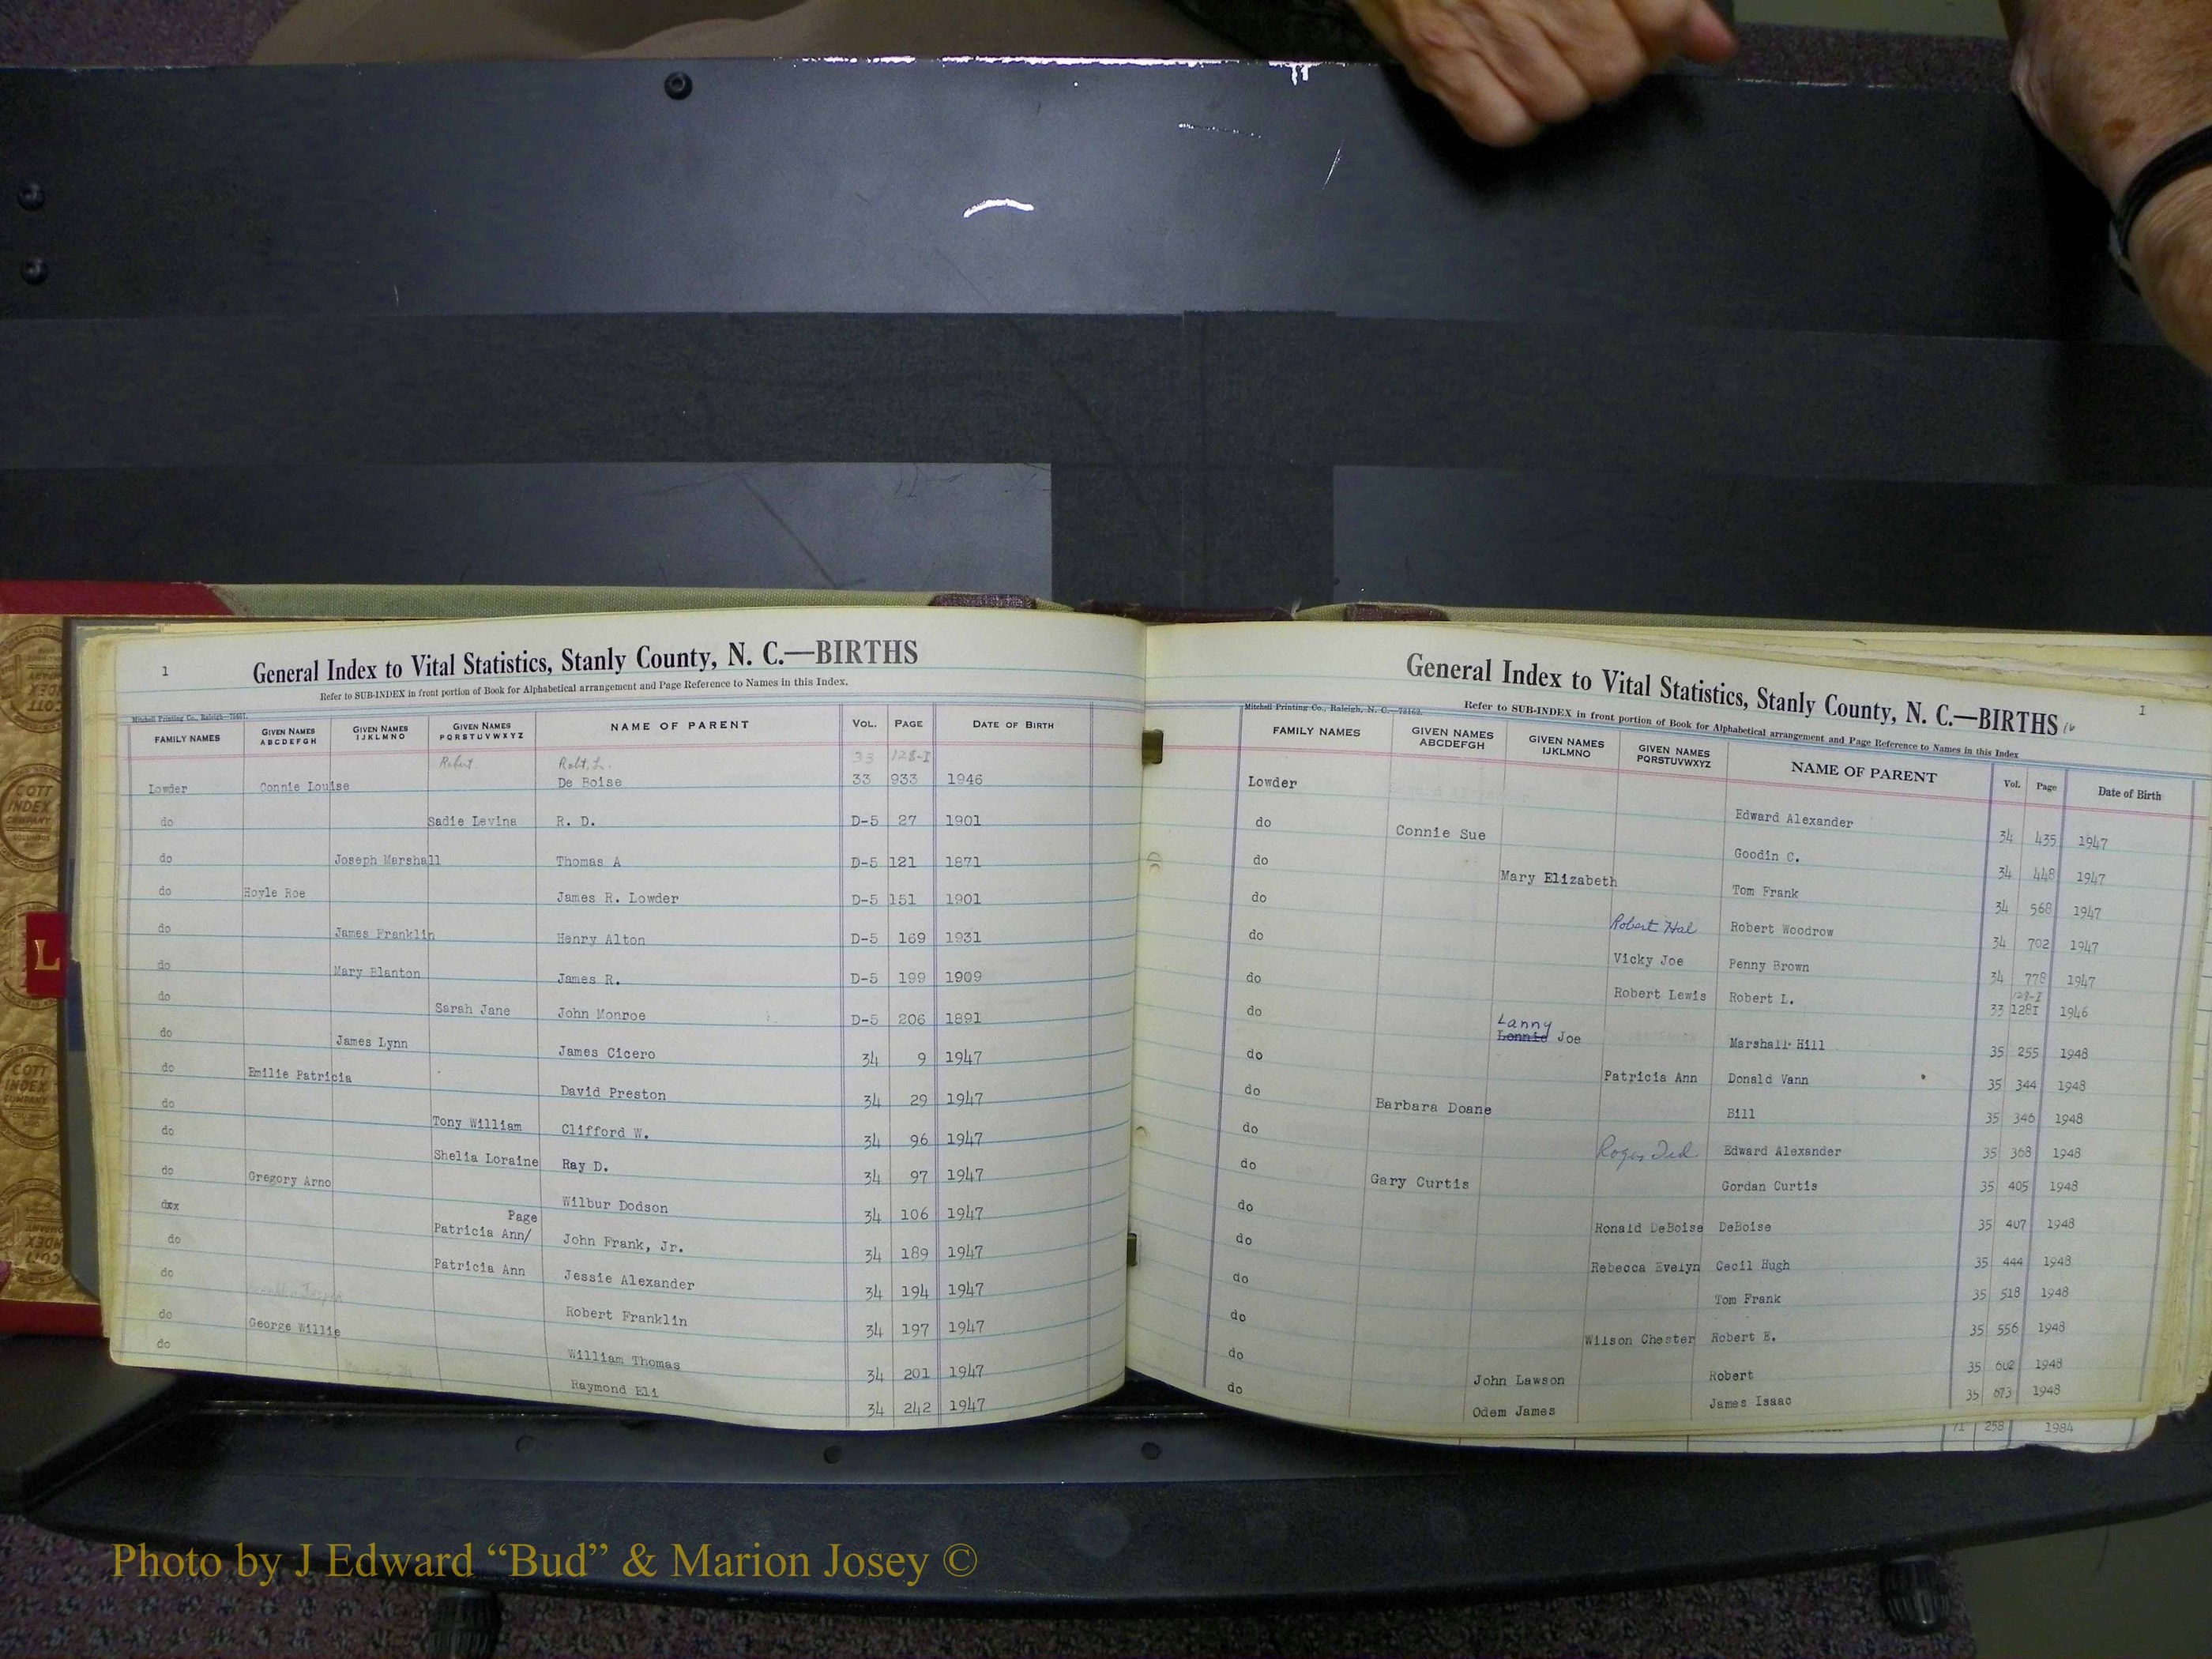 1
General Index to Vital Statistics, Stanly County, N. C.—BIRTHS
Refer to SUB-INDEX in front portion of Book for Alphabetical arrangement and Page Reference to Names in this Index.
Mitchell Printing Co., Raleigh—
FAMILY NAMES GIVEN NAMES ABCDEFGH GIVEN NAMES IJKLMNO GIVEN NAMES PQRSTUVWXYZ NAME OF PARENT VOL. PAGE DATE OF BIRTH
Robert Robt. L. 33 128-I
Lowder Connie Louise De Boise 33 933 1946
do Sadie Levina R. D. D-5 27 1901
do Joseph Marshall Thomas A D-5 121 1871
do Hoyle Roe James R. Lowder D-5 151 1901
do James Franklin Henry Alton D-5 169 1931
do Mary Blanton James R. D-5 199 1909
do Sarah Jane John Monroe D-5 206 1891
do James Lynn James Cicero 34 9 1947
do Emilie Patricia David Preston 34 29 1947
do Tony William Clifford W. 34 96 1947
do Shelia Loraine Ray D. 34 97 1947
do Gregory Arno Wilbur Dodson 34 106 1947
dxx Page
Patricia Ann/ John Frank, Jr. 34 189 1947
do Patricia Ann Jessie Alexander 34 194 1947
do Robert Franklin 34 197 1947
do George Willie William Thomas 34 201 1947
do Raymond Eli 34 242 1947
General Index to Vital Statistics, Stanly County, N. C.—BIRTHS 16
1
Refer to SUB-INDEX in front portion of Book for Alphabetical arrangement and Page Reference to Names in this Index
Mitchell Printing Co., Raleigh, N. C.—
FAMILY NAMES GIVEN NAMES ABCDEFGH GIVEN NAMES IJKLMNO GIVEN NAMES PQRSTUVWXYZ NAME OF PARENT Vol. Page Date of Birth
Lowder Edward Alexander 34 435 1947
do Connie Sue Goodin C. 34 448 1947
do Mary Elizabeth Tom Frank 34 568 1947
do Robert Hal Robert Woodrow 34 702 1947
do Vicky Joe Penny Brown 34 778 1947
128-I
do Robert Lewis Robert L. 33 128I 1946
Lanny
do Lonnie Joe Marshall Hill 35 255 1948
do Patricia Ann Donald Vann 35 344 1948
do Barbara Doane Bill 35 346 1948
do Roger Ted Edward Alexander 35 368 1948
do Gary Curtis Gordan Curtis 35 405 1948
do Ronald DeBoise DeBoise 35 407 1948
do Rebecca Evelyn Cecil Hugh 35 444 1948
do Tom Frank 35 518 1948
do Wilson Chester Robert E. 35 556 1948
do John Lawson Robert 35 602 1948
do Odem James James Isaac 35 673 1948
71 258 1984
L
COTT INDEX COMPANY
COTT INDEX
Photo by J Edward “Bud” & Marion Josey ©